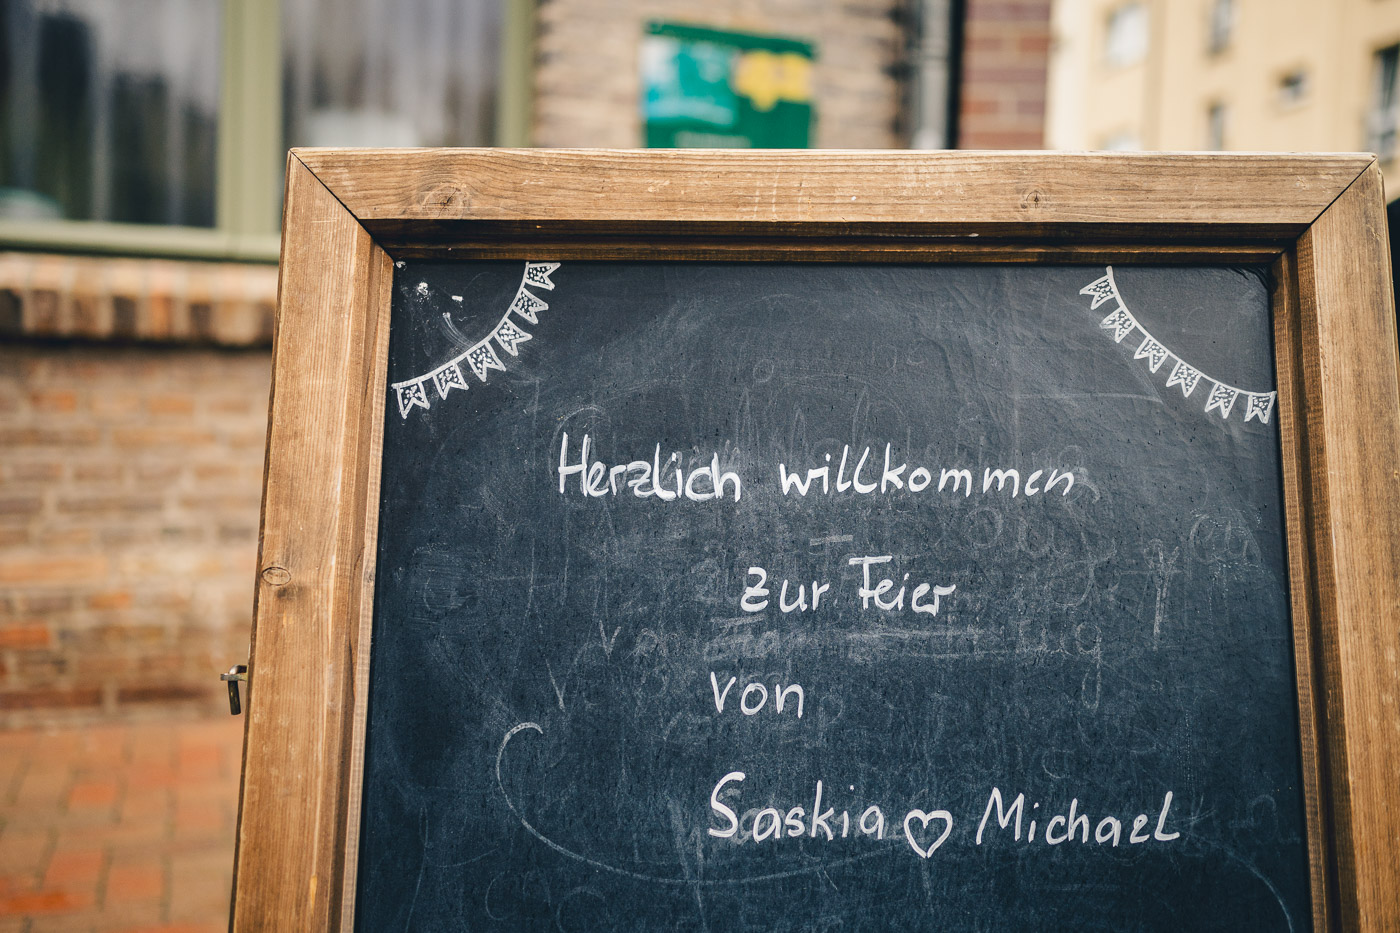 Herzlich willkommen
zur Feier
von
Saskia ♡ Michael